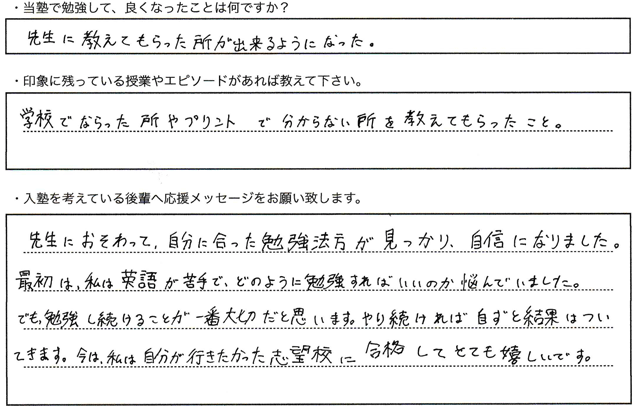 ・当塾で勉強して、良くなったことは何ですか？
先生に教えてもらった所が出来るようになった。
・印象に残っている授業やエピソードがあれば教えて下さい。
学校でならった所やプリントで分からない所を教えてもらったこと。
・入塾を考えている後輩へ応援メッセージをお願い致します。
先生におそわって、自分に合った勉強法方が見つかり、自信になりました。
最初は、私は英語が苦手で、どのように勉強すればいいのか悩んでいました。
でも、勉強し続けることが一番大切だと思います。やり続ければ自ずと結果はつい
てきます。今は、私は自分が行きたかった志望校に合格してとても嬉しいです。